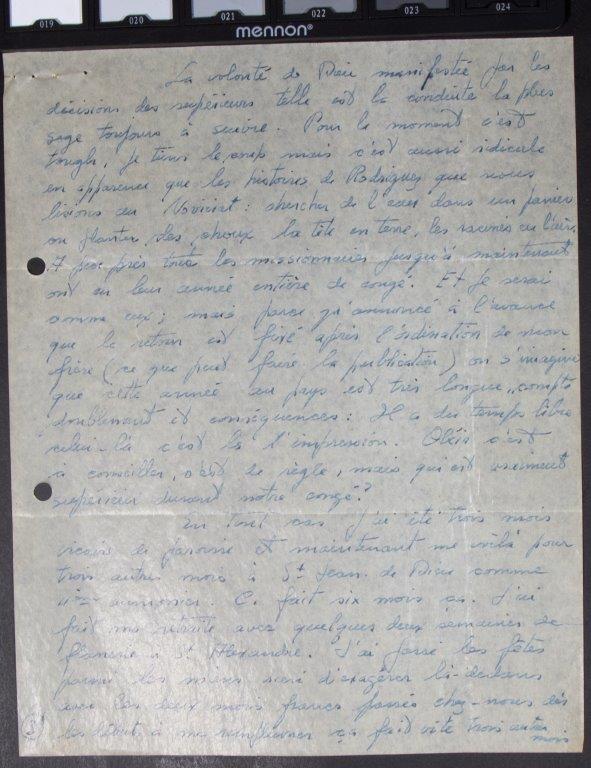 019 020 021 022 023 024
mennon®
La volonté de Dieu manifestée par les
décisions des supérieurs telle est la conduite la plus
sage toujours à suivre. Pour le moment c'est
tough, je tiens le coup mais c'est aussi ridicule
en apparence que les histoires de Rodriguez que nous
lisions au Noviciat: chercher de l'eau dans un panier
ou planter des choux la tête en terre, les racines en l'air.
A peu près tous les missionnaires jusqu'à maintenant
ont eu leur année entière de congé. Et je serai
comme eux; mais parce qu'annoncé à l'avance
que le retour est fixé après l'ordination de mon
frère (ce que peut faire la publication) on s'imagine
que cette année au pays est très longue, compte
doublement et conséquences: Il a du temps libre
celui-là c'est là l'impression. Obéir c'est
à conseiller, c'est la règle, mais qui est vraiment
supérieur durant notre congé?
En tout cas j'ai été trois mois
vicaire de paroisse et maintenant me voilà pour
trois autres mois à St Jean de Dieu comme
aumonier. Ç fait six mois ça. J'ai
fait ma retraite avec quelques deux semaines de
flânerie à St Alexandre. J'ai passé les fêtes
parmi les miens sans d'exagérer là-dedans
avec les deux mois francs passés chez-nous dès
les début à me ça fait vite trois autres
mois